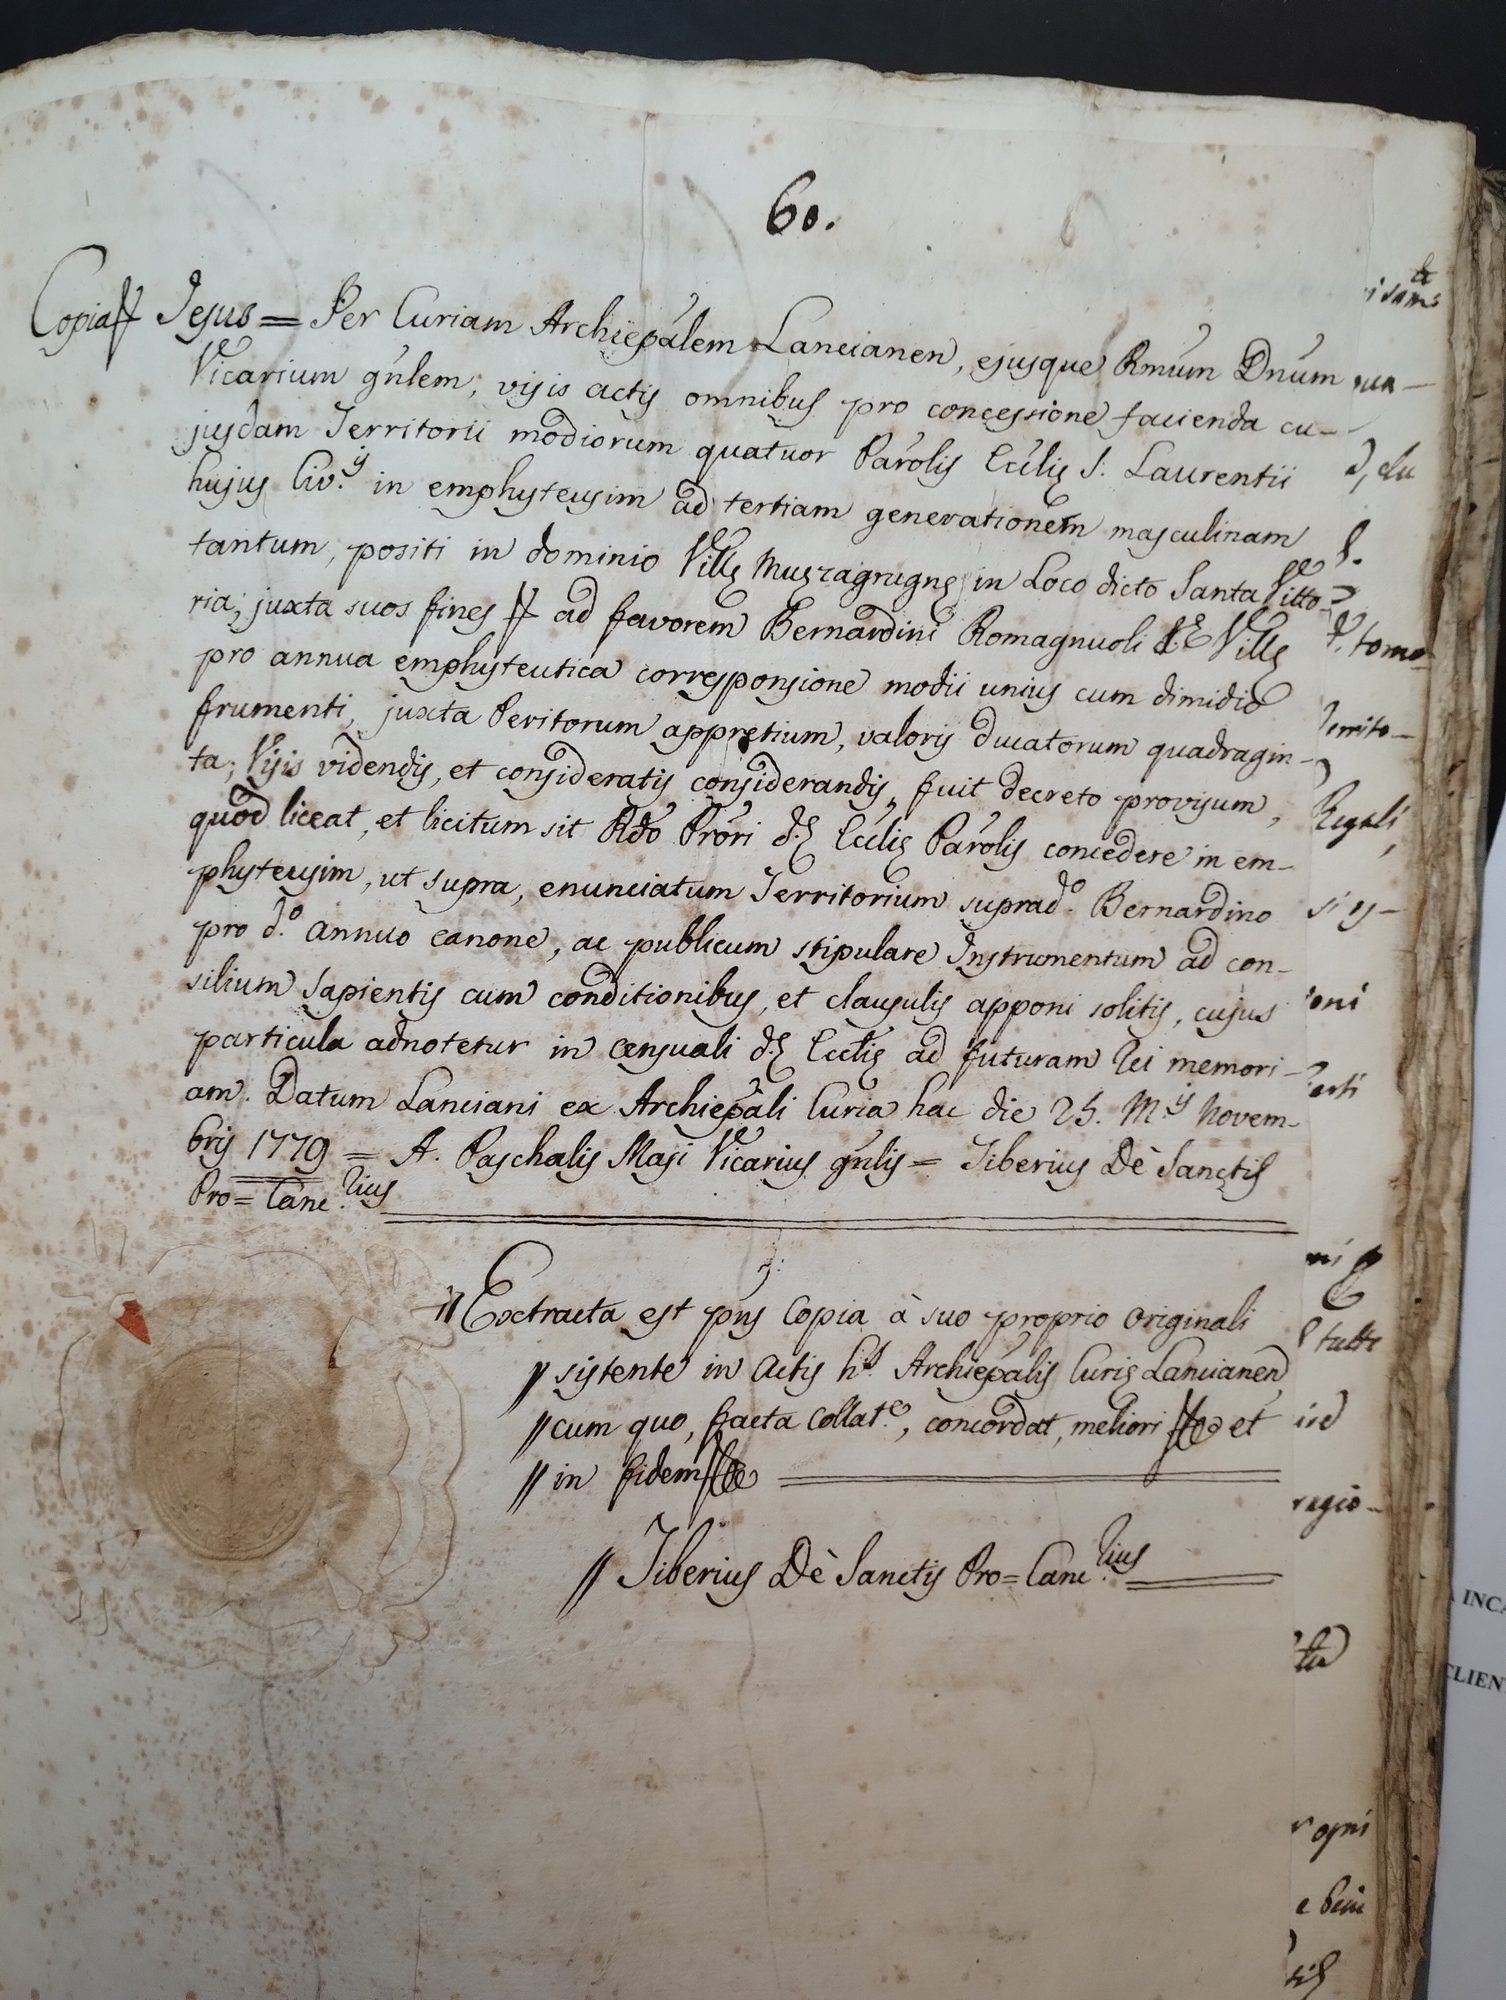 60.
Copia Jesus = Per Curiam Archiepalem Lancianen, ejusque Rmum Dnum
Vicarium gnlem, visis actis omnibus pro concessione facienda cu-
jusdam Territorii modiorum quatuor Parolis Ecclię S. Laurentii
hujus Civ.ˢ in emphyteusim ad tertiam generationem masculinam
tantum, positi in dominio Villę Muczagrugnę in Loco dicto Santa Vitto-
ria, juxta suos fines ad favorem Bernardini Romagnuoli Villę
pro annua emphyteutica corresponsione modii unius cum dimidio
frumenti, juxta Peritorum appretium, valoris ducatorum quadragin-
ta; Visis videndis, et consideratis considerandis, fuit decreto provisum,
quod liceat, et licitum sit Rdo Prori d.ę Ecclię Parolis concedere in em-
phyteusim, ut supra, enunciatum Territorium suprad.º Bernardino
pro d.º annuo canone, ac publicum stipulare Instrumentum ad con-
silium Sapientis cum conditionibus, et clausulis apponi solitis, cujus
particula adnotetur in censuali d.ę Ecclię ad futuram Rei memori-
am. Datum Lanciani ex Archiepali Curia hac die 25. M.ˢ Novem-
bris 1779 = A. Paschalis Masi Vicarius gnlis = Tiberius Dè Sanctis
Pro=Canc.rius
Extracta est pns Copia à suo proprio originali
// sistente in Actis h.ˢ Archiepalis Curię Lancianen
// cum quo, facta collat.e, concordat, meliori et
// in fidem
// Tiberius Dè Sanctis Pro=Canc.rius